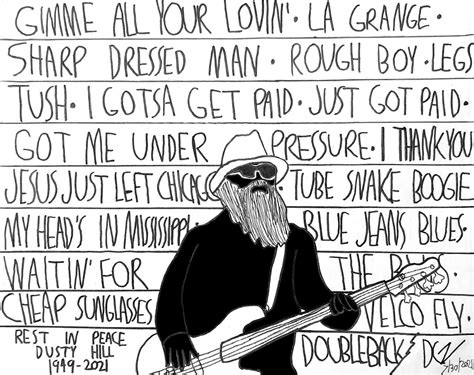 GIMME ALL YOUR LOVIN' · LA GRANGE ·
SHARP DRESSED MAN · ROUGH BOY · LEGS
TUSH · I GOTSA GET PAID · JUST GOT PAID ·
GOT ME UNDER PRESSURE · I THANK YOU
JESUS JUST LEFT CHICAGO TUBE SNAKE BOOGIE
MY HEAD'S IN MISSISSIPPI · BLUE JEANS BLUES ·
WAITIN' FOR THE
CHEAP SUNGLASSES VELCO FLY ·
REST IN PEACE
DUSTY HILL
1949-2021
DOUBLEBACK
7/30/2021